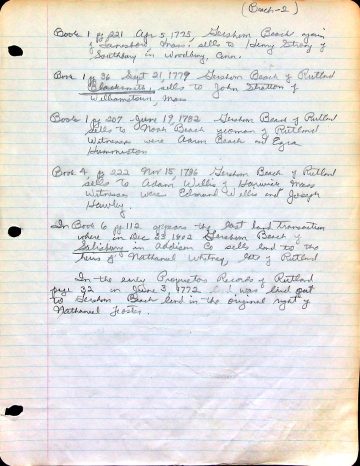 (Beach-2)
Book 1 pg 221 Apr 5, 1775, Gershom Beach again
of Lanesboro, Mass. sells to Henry Strong of
Southbury in Woodbury, Conn.
Book 1 pg 36 Sept 21, 1779 Gershom Beach of Rutland
Blacksmith, sells to John Stratton of
Williamstown, Mass
Book 1 pg 207 June 19, 1782 Gershom Beach of Rutland
sells to Noah Beach yeoman of Rutland
Witnesses were Aaron Beach and Ezra
Hummiston
Book 4, pg 222 Nov 15, 1786 Gershom Beach of Rutland
sells to Adam Willis of Mass
Witnesses were Edmund Willis and Joseph
Hawley.
In Book 6 pg 112 appears the last land transaction
where in Dec 1802 Gershom Beach of
Salisbury in Addison Co sells land to the
heirs of Nathaniel Whitney, late of Rutland
In the early Proprietors Records of Rutland
page 32 in June 3, 1772 land was laid out
to Gershom Beach land in the original right of
Nathaniel Foster.